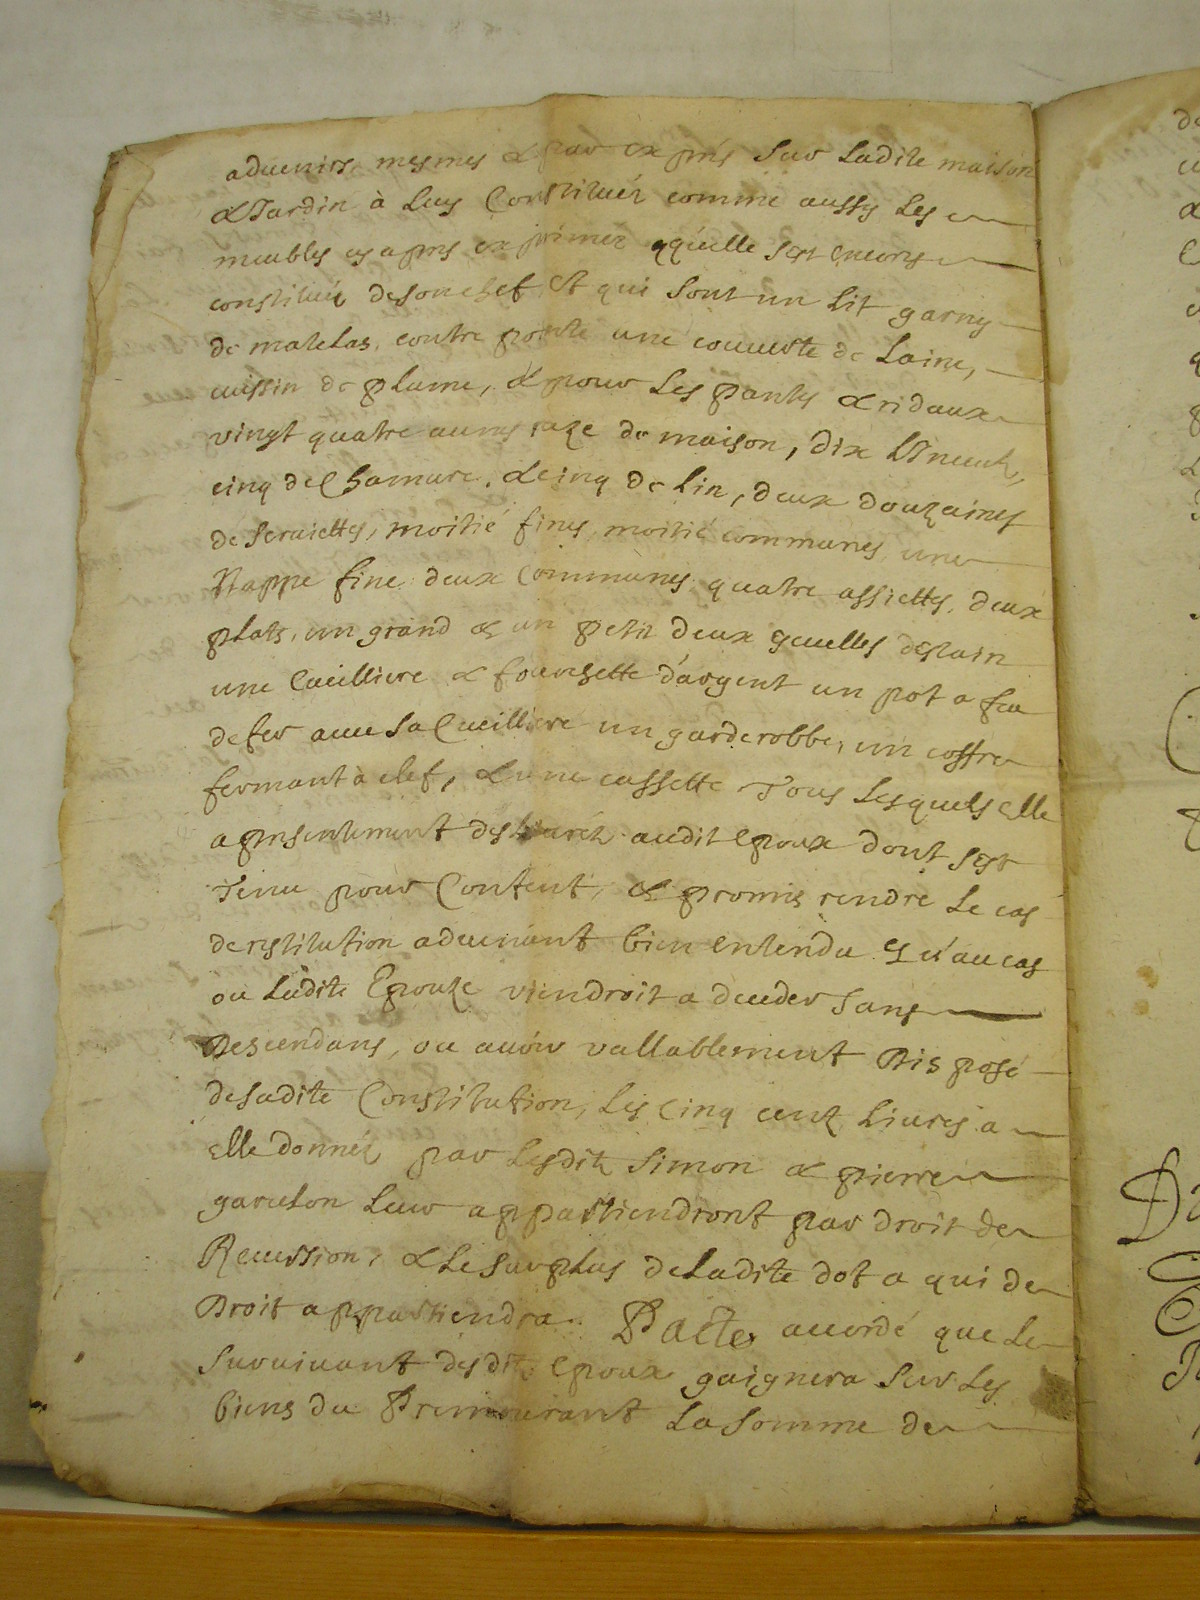 aduenirs mesmes & par exprés sur Ladite maison
& Jardin à Luy Constituéz comme aussy Les
meubles cy apres exprimez qu'elle s'est encores
constitué de son chef Et qui sont un Lit garny
de matelas, contre pointe une couuerte de Laine,
cussin de plume, & pour Les pantes & ridaux
vingt quatre aunes raze de maison, dix
cinq de Chamure, & cinq de Lin, deux douzaines
de seruiettes, moitié fines, moitié communes, une
Nappe fine deux Communes, quatre assiettes, deux
plats, un grand & un petit deux Escuelles destain
une Cueilliere & fourchette d'argent un pot a feu
de fer auec sa Cueilliere un garderobbe, un coffre
fermant à clef, & une cassette Tous Lesquels Elle
a presentement desliuréz audit Epoux dont s'est
Tenu pour Content, & promis rendre Le cas
de restitution aduenant bien entendu Qu'au cas
ou Ladite Epouze viendroit a deceder sans
Descendans, ou auoir vallablement Disposé
de sadite Constitution, Les Cinq cent Liures a
Elle donnéz par Lesdits Simon & pierre
garcelon Leur appartiendront par droit de
Reuersion, & Le surplus de Ladite dot a qui de
Droit appartiendra. Pacte accordé que Le
suruiuant desdits Epoux gaignera sur Les
biens du Premourant La somme de